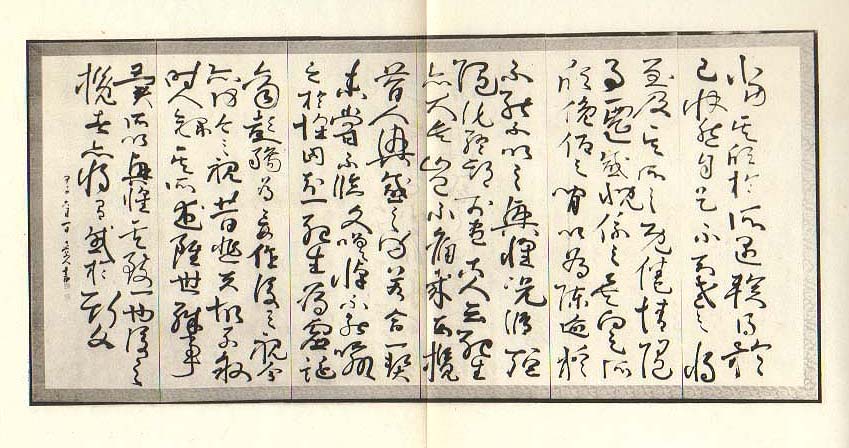 當其欣於所遇暫得於
己快然自足不知老之將
至及其所之既倦情隨
事遷感慨係之矣向之所
欣俛仰之間以為陳迹猶
不能不以之興懷況脩短
隨化終期於盡古人云死生
亦大矣豈不痛哉每攬
昔人興感之由若合一契
未嘗不臨文嗟悼不能喻
之於懷固知一死生為虛誕
齊彭殤為妄作後之視今
亦由今之視昔悲夫故列敘
時人錄其所述雖世殊事
異所以興懷其致一也後之
攬者亦將有感於斯文